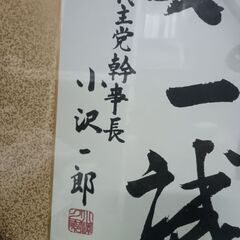 一誠
民主党幹事長
小沢一郎